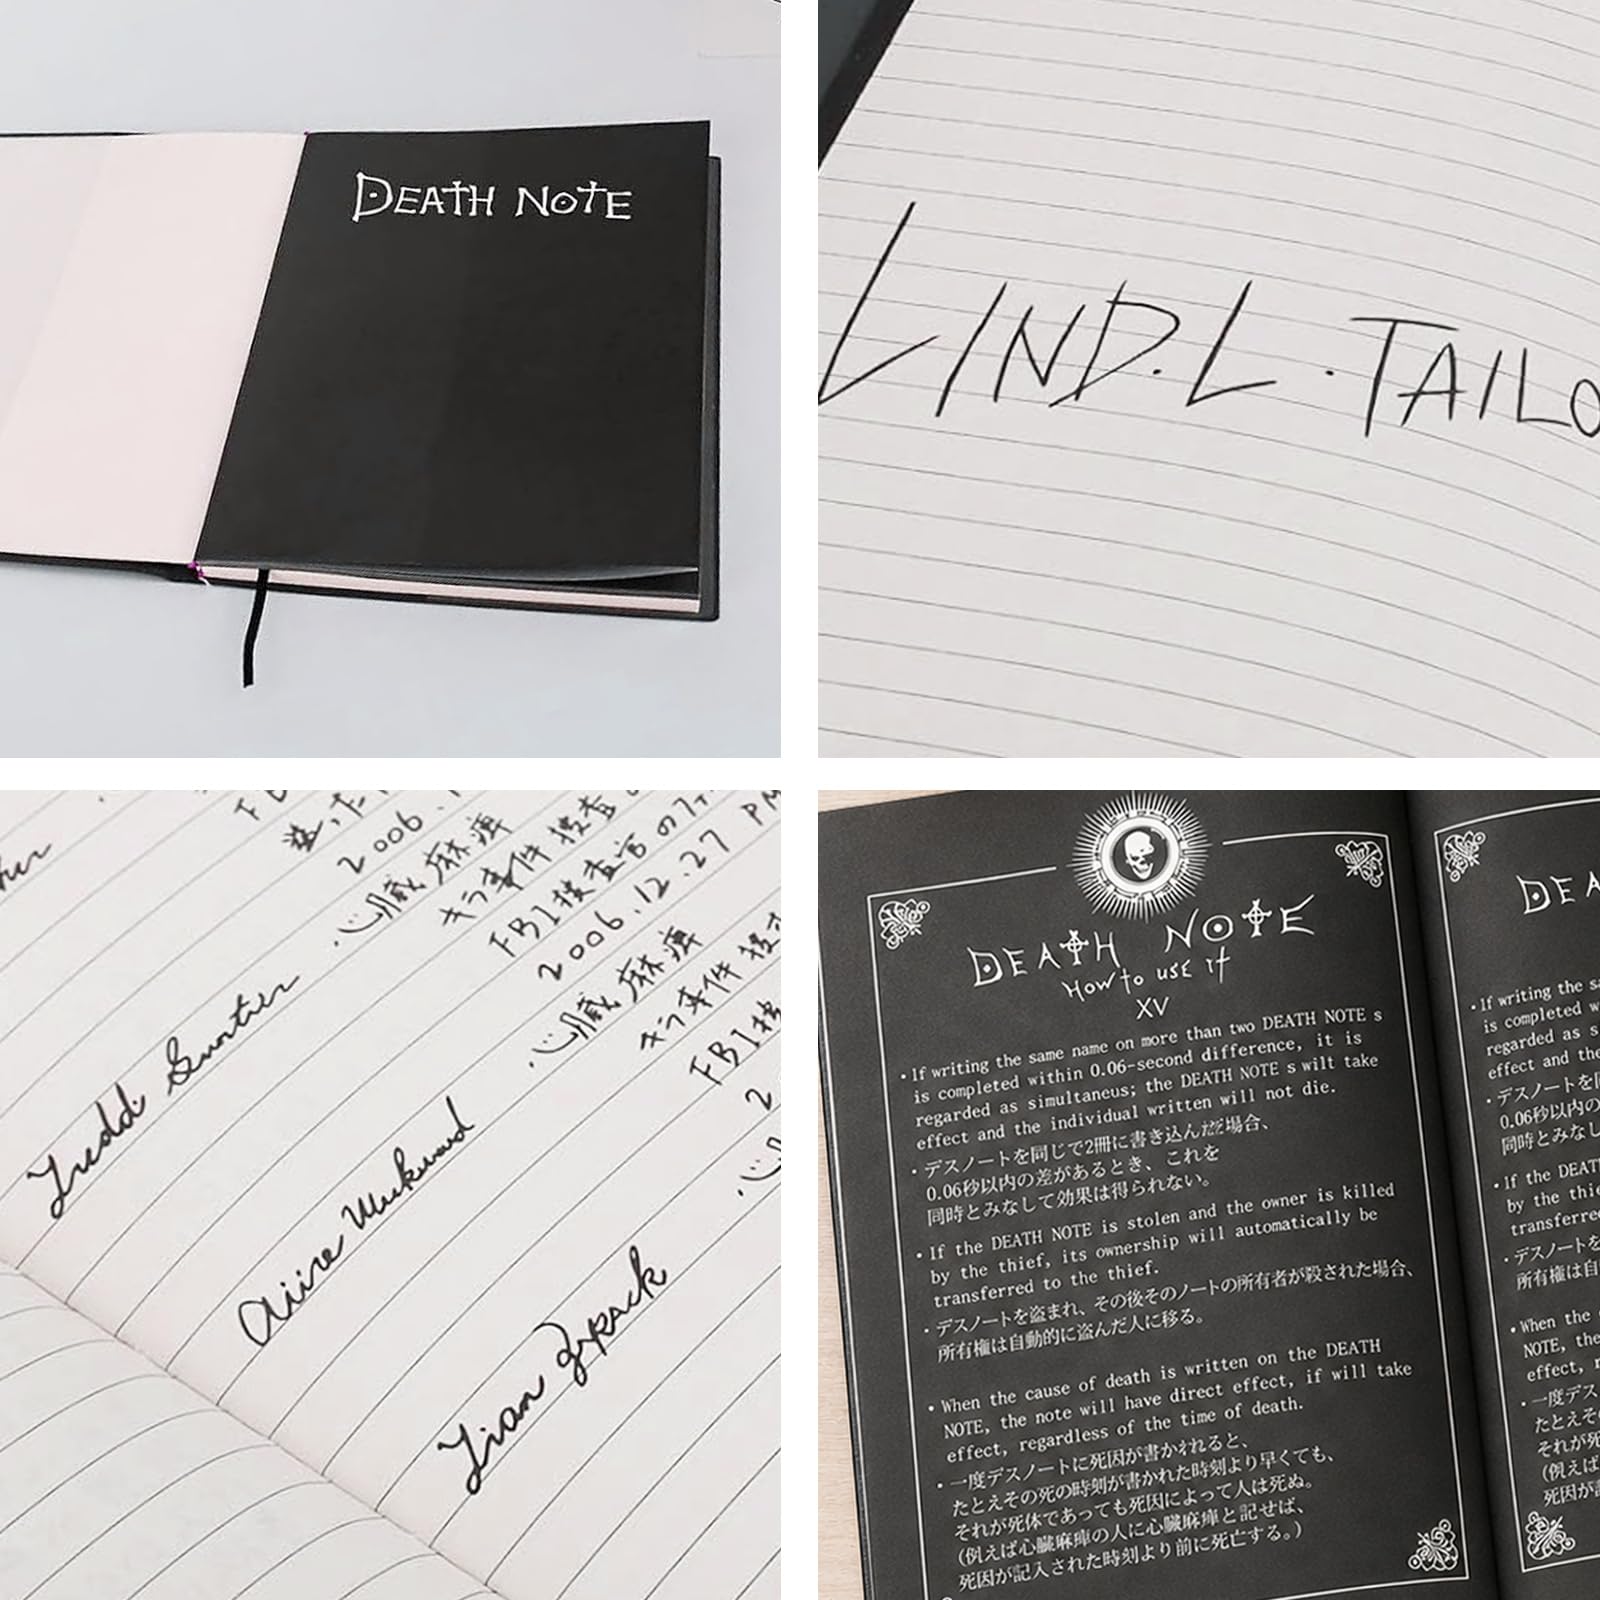 DEATH NOTE
LIND.L.TAILO
2006.
心臓麻痺
キラ事件捜査
FBI捜査官の
2006.12.27 PM
Fredd Guntier
心臓麻痺
キラ事件
FBI捜
2
Lian Zapack
DEATH NOTE
How to use it
XV
・If writing the same name on more than two DEATH NOTE s
is completed within 0.06-second difference, it is
regarded as simultaneus; the DEATH NOTE s wilt take
effect and the individual written will not die.
・デスノートを同じで2冊に書き込んだ場合、
0.06秒以内の差があるとき、これを
同時とみなして効果は得られない。
・If the DEATH NOTE is stolen and the owner is killed
by the thief, its ownership will automatically be
transferred to the thief.
・デスノートを盗まれ、その後そのノートの所有者が殺された場合、
所有権は自動的に盗んだ人に移る。
・When the cause of death is written on the DEATH
NOTE, the note will have direct effect, if will take
effect, regardless of the time of death.
・一度デスノートに死因が書かれると、
たとえその死の時刻が書かれた時刻より早くても、
それが死体であっても死因によって人は死ぬ。
(例えば心臓麻痺の人に心臓麻痺と記せば、
死因が記入された時刻より前に死亡する。)
DEA
・If writing the sa
is completed w
regarded as s
effect and the
・デスノートを同
0.06秒以内の
同時とみなし
・If the DEAT
by the thie
transferre
・デスノートを
所有権は自
・When the
NOTE, the
effect, r
・一度デス
たとえそ
それが死
(例えば
死因が